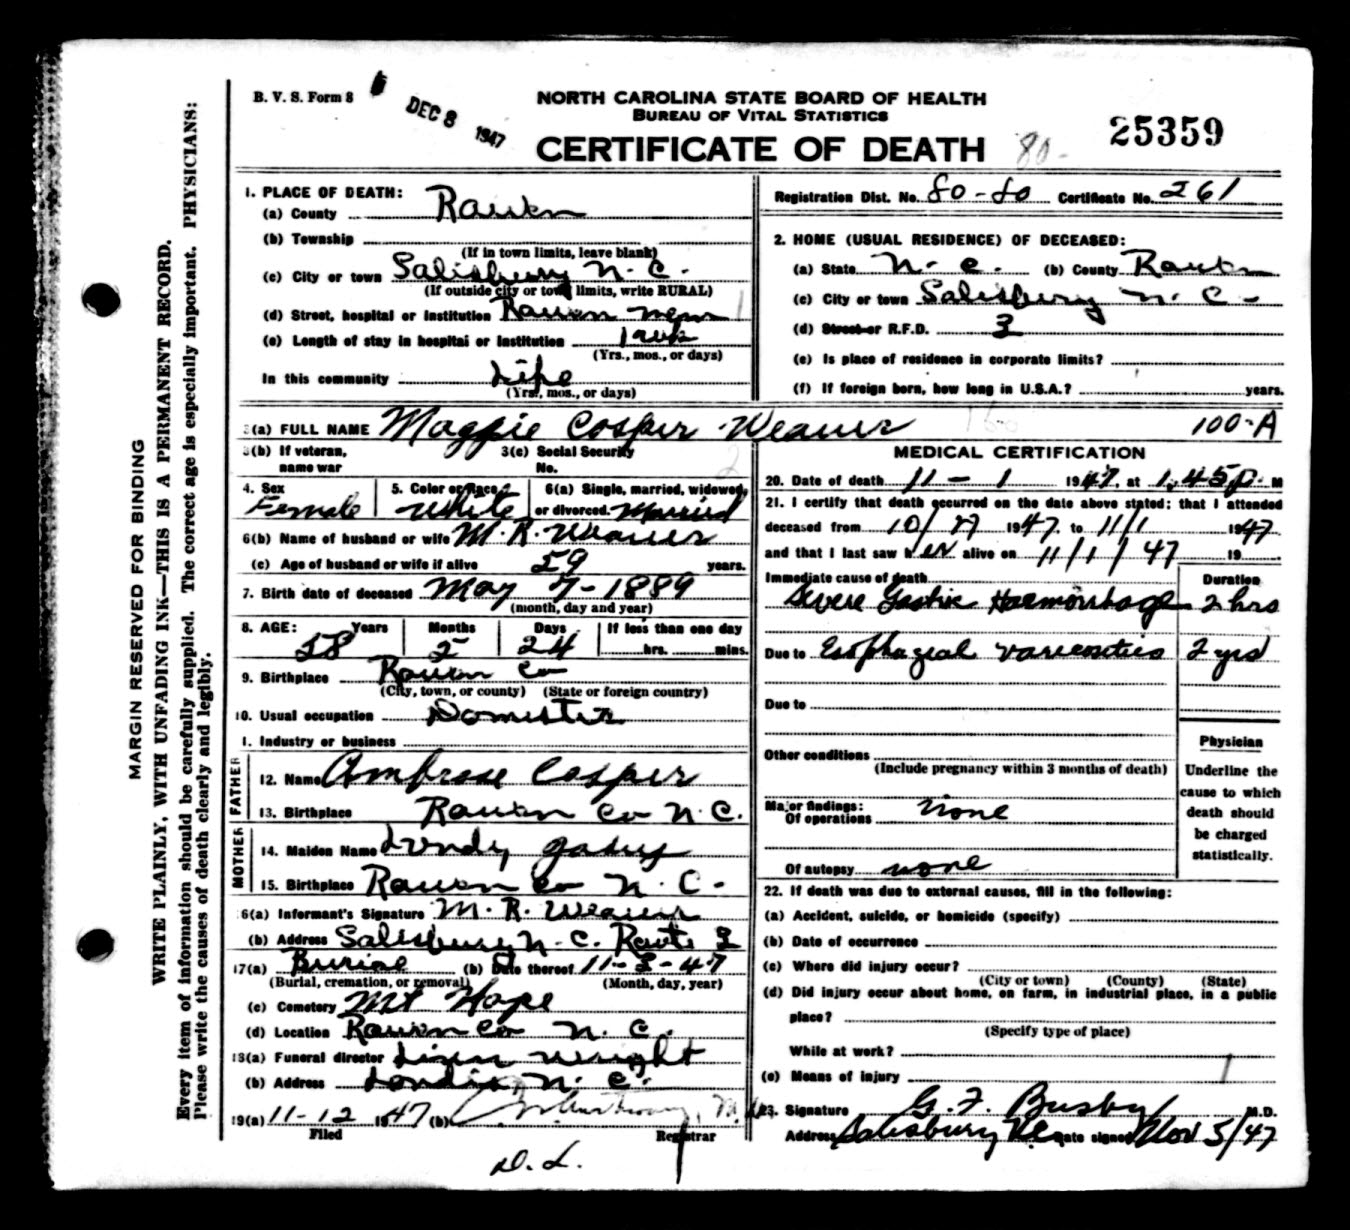 B. V. S. Form 8
DEC 8 1947
NORTH CAROLINA STATE BOARD OF HEALTH
BUREAU OF VITAL STATISTICS
CERTIFICATE OF DEATH
80-
25359
MARGIN RESERVED FOR BINDING
WRITE PLAINLY, WITH UNFADING INK—THIS IS A PERMANENT RECORD.
Every item of information should be carefully supplied. The correct age is especially important. PHYSICIANS:
Please write the causes of death clearly and legibly.
1. PLACE OF DEATH:
(a) County Rowan
(b) Township
(If in town limits, leave blank)
(c) City or town Salisbury N. C.
(If outside city or town limits, write RURAL)
(d) Street, hospital or institution Rowan Mem
(e) Length of stay in hospital or institution 1
(Yrs., mos., or days)
In this community Life
(Yrs., mos., or days)
Registration Dist. No. 80-80 Certificate No. 261
2. HOME (USUAL RESIDENCE) OF DECEASED:
(a) State N. C. (b) County Rowan
(c) City or town Salisbury N. C.
(d) Street or R.F.D. 3
(e) Is place of residence in corporate limits?
(f) If foreign born, how long in U.S.A.? years.
3(a) FULL NAME Maggie Casper Weaver
100-A
3(b) If veteran, name war
3(c) Social Security No.
4. Sex Female
5. Color or Race? White
6(a) Single, married, widowed, or divorced. Married
6(b) Name of husband or wife M. R. Weaver
(c) Age of husband or wife if alive 59 years.
7. Birth date of deceased May 7-1889
(month, day and year)
8. AGE: Years 58 Months 5 Days 24 If less than one day hrs. mins.
9. Birthplace Rowan Co
(City, town, or county) (State or foreign country)
10. Usual occupation Domestic
1. Industry or business
FATHER
12. Name Ambrose Casper
13. Birthplace Rowan Co N. C.
MOTHER
14. Maiden Name Lundy
15. Birthplace Rowan Co N. C.
16(a) Informant's Signature M. R. Weaver
(b) Address Salisbury N. C. Route 3
17(a) Burial (b) Date thereof 11-3-47
(Burial, cremation, or removal) (Month, day, year)
(c) Cemetery Mt Hope
(d) Location Rowan Co N. C.
18(a) Funeral director Linn Wright
(b) Address Landis, N. C.
19(a) 11-12 1947 (b) M.D.
Filed Registrar
D. L.
MEDICAL CERTIFICATION
20. Date of death 11-1 1947. at 1:45 P. M
21. I certify that death occurred on the date above stated; that I attended
deceased from 10/ 1947 to 11/1 1947
and that I last saw her alive on 11/1/47 19
Immediate cause of death Duration
Severe Gastric Haemorrhage 2 hrs
Due to Esophageal varicosities 2 yrs
Due to
Other conditions
(Include pregnancy within 3 months of death)
Major findings:
Of operations none
Of autopsy none
Physician
Underline the
cause to which
death should
be charged
statistically.
22. If death was due to external causes, fill in the following:
(a) Accident, suicide, or homicide (specify)
(b) Date of occurrence
(c) Where did injury occur?
(City or town) (County) (State)
(d) Did injury occur about home, on farm, in industrial place, in a public
place?
(Specify type of place)
While at work?
(e) Means of injury
23. Signature G. F. Busby M.D.
Address Salisbury NC Date signed Nov 5/47